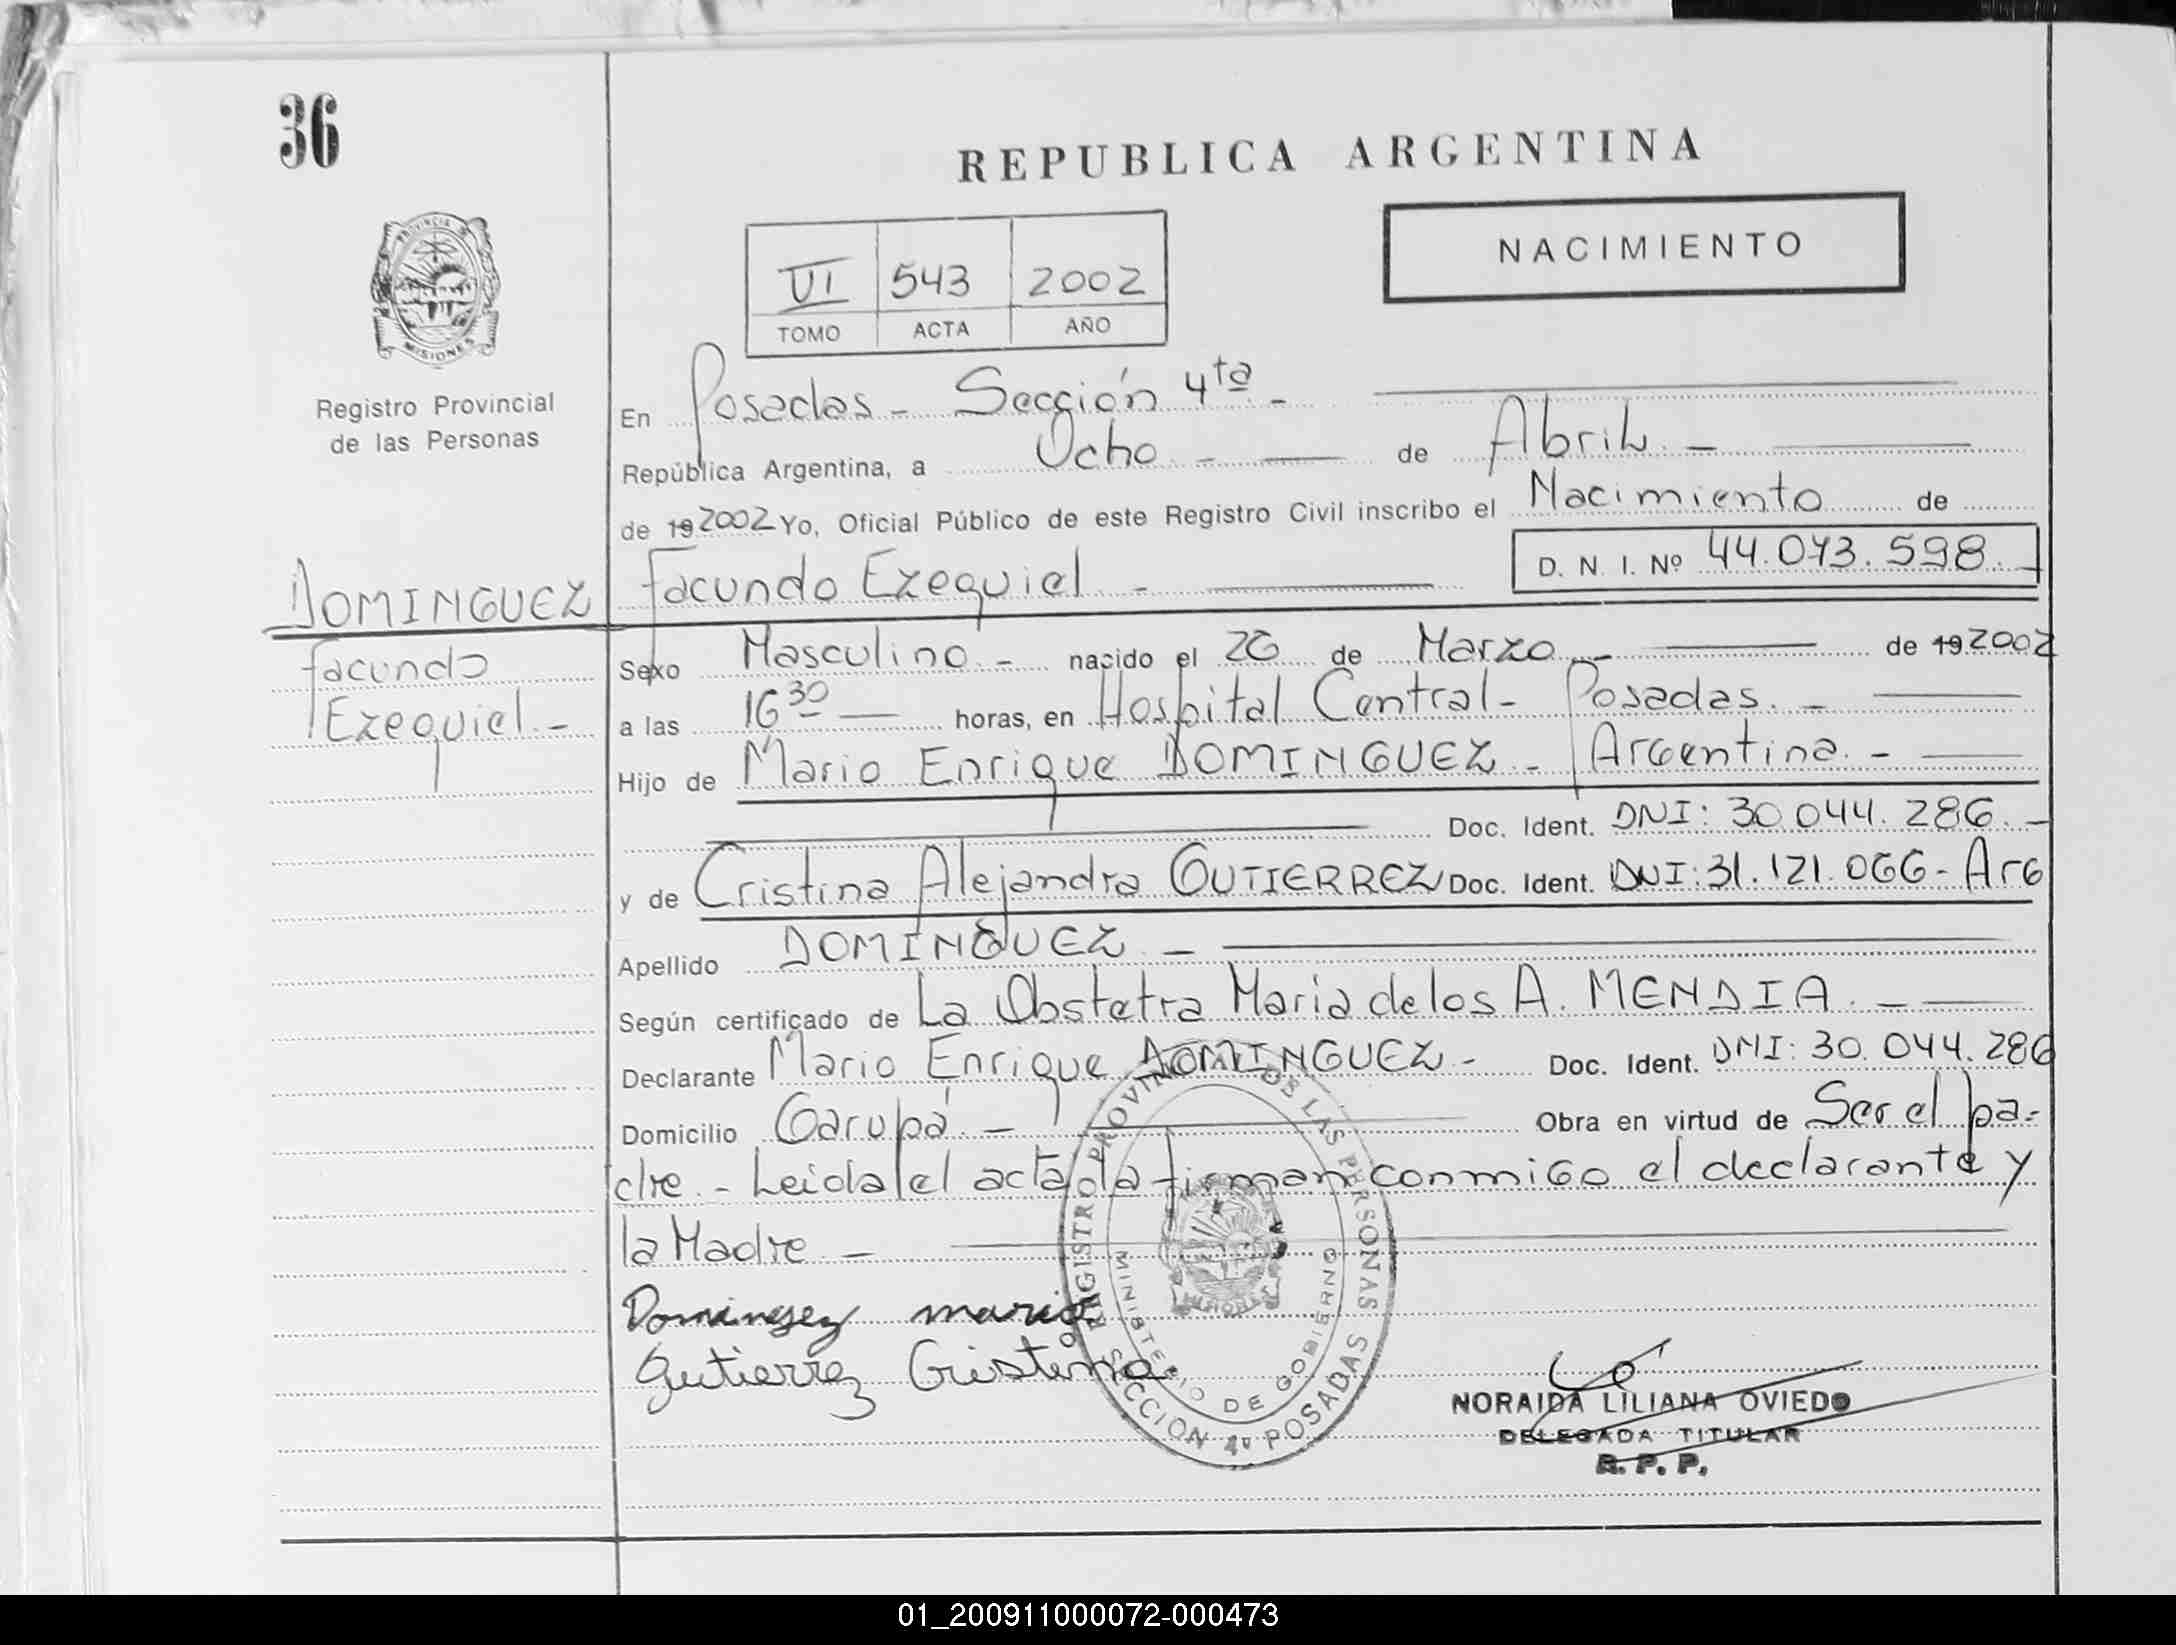 36
REPUBLICA ARGENTINA
NACIMIENTO
VI 543 2002
TOMO ACTA AÑO
PROVINCIA DE MISIONES
Registro Provincial
de las Personas
En Posadas - Sección 4ta -
República Argentina, a Ocho - de Abril -
de 19 2002 Yo, Oficial Público de este Registro Civil inscribo el Nacimiento de
D. N. I. Nº 44.073.598.-
DOMINGUEZ Facundo Ezequiel -
Facundo
Ezequiel.-
Sexo Masculino.- nacido el 26 de Marzo - de 19 2002
a las 16 30 horas, en Hospital Central - Posadas. -
Hijo de Mario Enrique DOMINGUEZ - Argentina. -
Doc. Ident. DNI: 30.044.286.-
y de Cristina Alejandra GUTIERREZ Doc. Ident. DNI: 31.121.066 - Arg
Apellido DOMINGUEZ -
Según certificado de La Obstetra Maria de los A. MENDIA. -
Declarante Mario Enrique DOMINGUEZ - Doc. Ident. DNI: 30.044.286
Domicilio Garupá - Obra en virtud de Ser el pa-
dre. - Leida el acta la firman conmigo el declarante y
la Madre -
Dominguez mario
Gutierrez Cristina
REGISTRO PROVINCIAL DE LAS PERSONAS
MINISTERIO DE GOBIERNO
SECCION 4ª POSADAS
NORAIDA LILIANA OVIEDO
DELEGADA TITULAR
R. P. P.
01_200911000072-000473